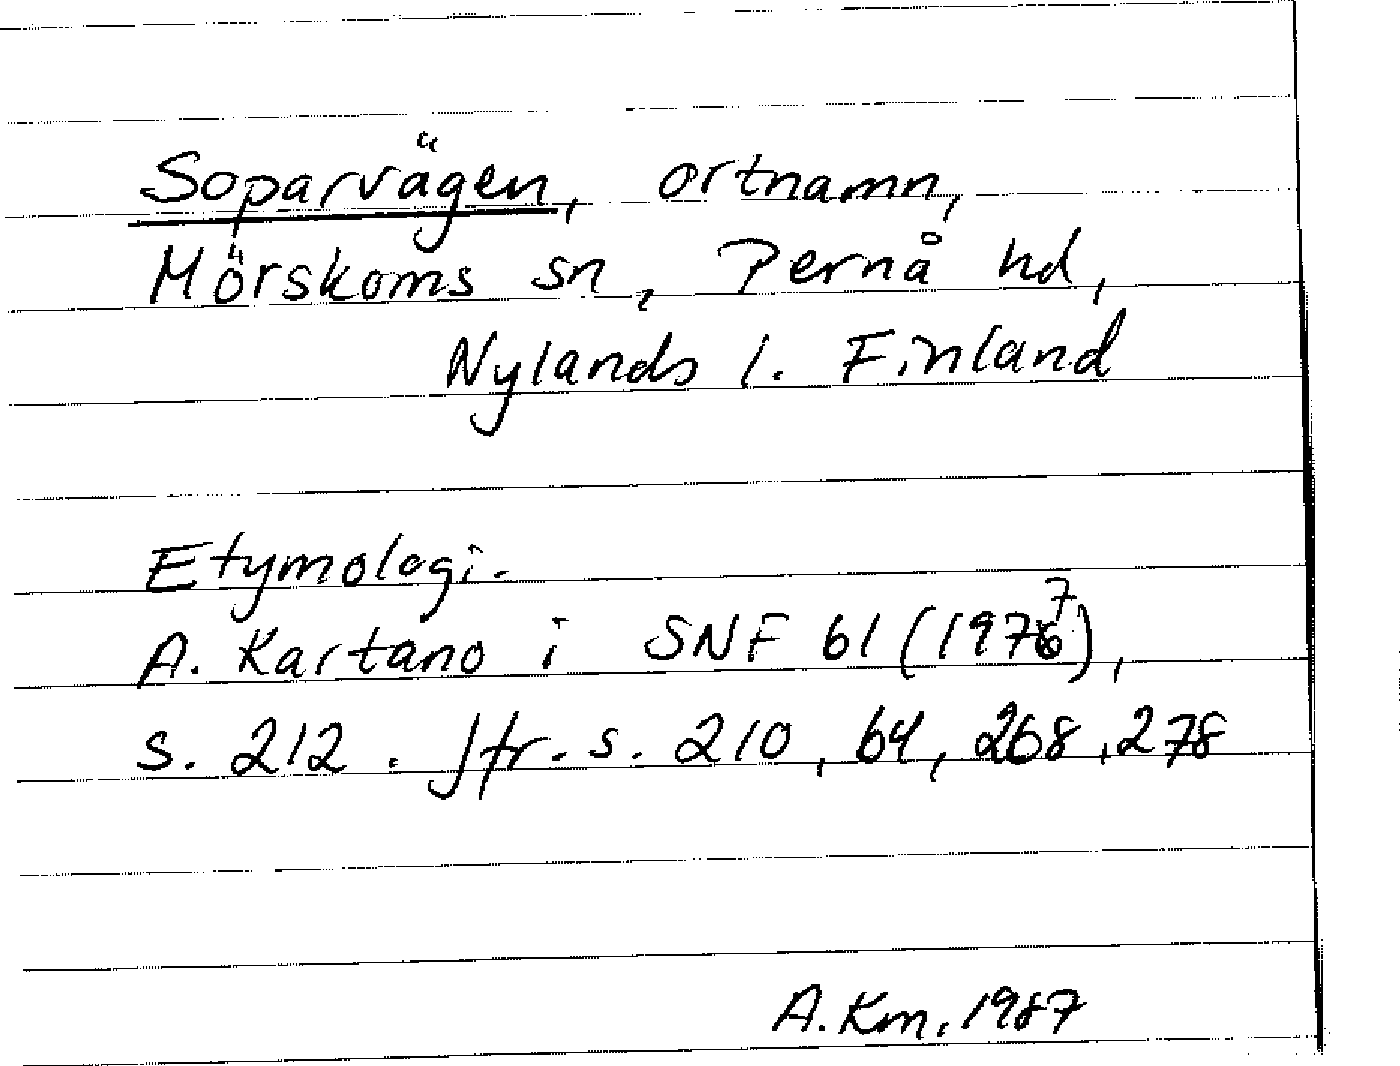 Soparvägen, ortnamn,
Mörskoms sn, Pernå hd,
Nylands l. Finland
Etymologi.
A. Kartano i SNF 61 (1977),
s. 212. Jfr. s. 210, 64, 268, 278
A. Km. 1987